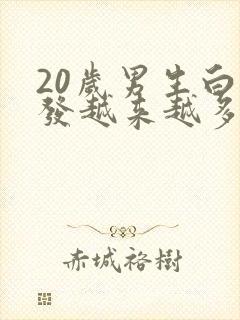 20歲男生白
發越來越多
赤城裕樹